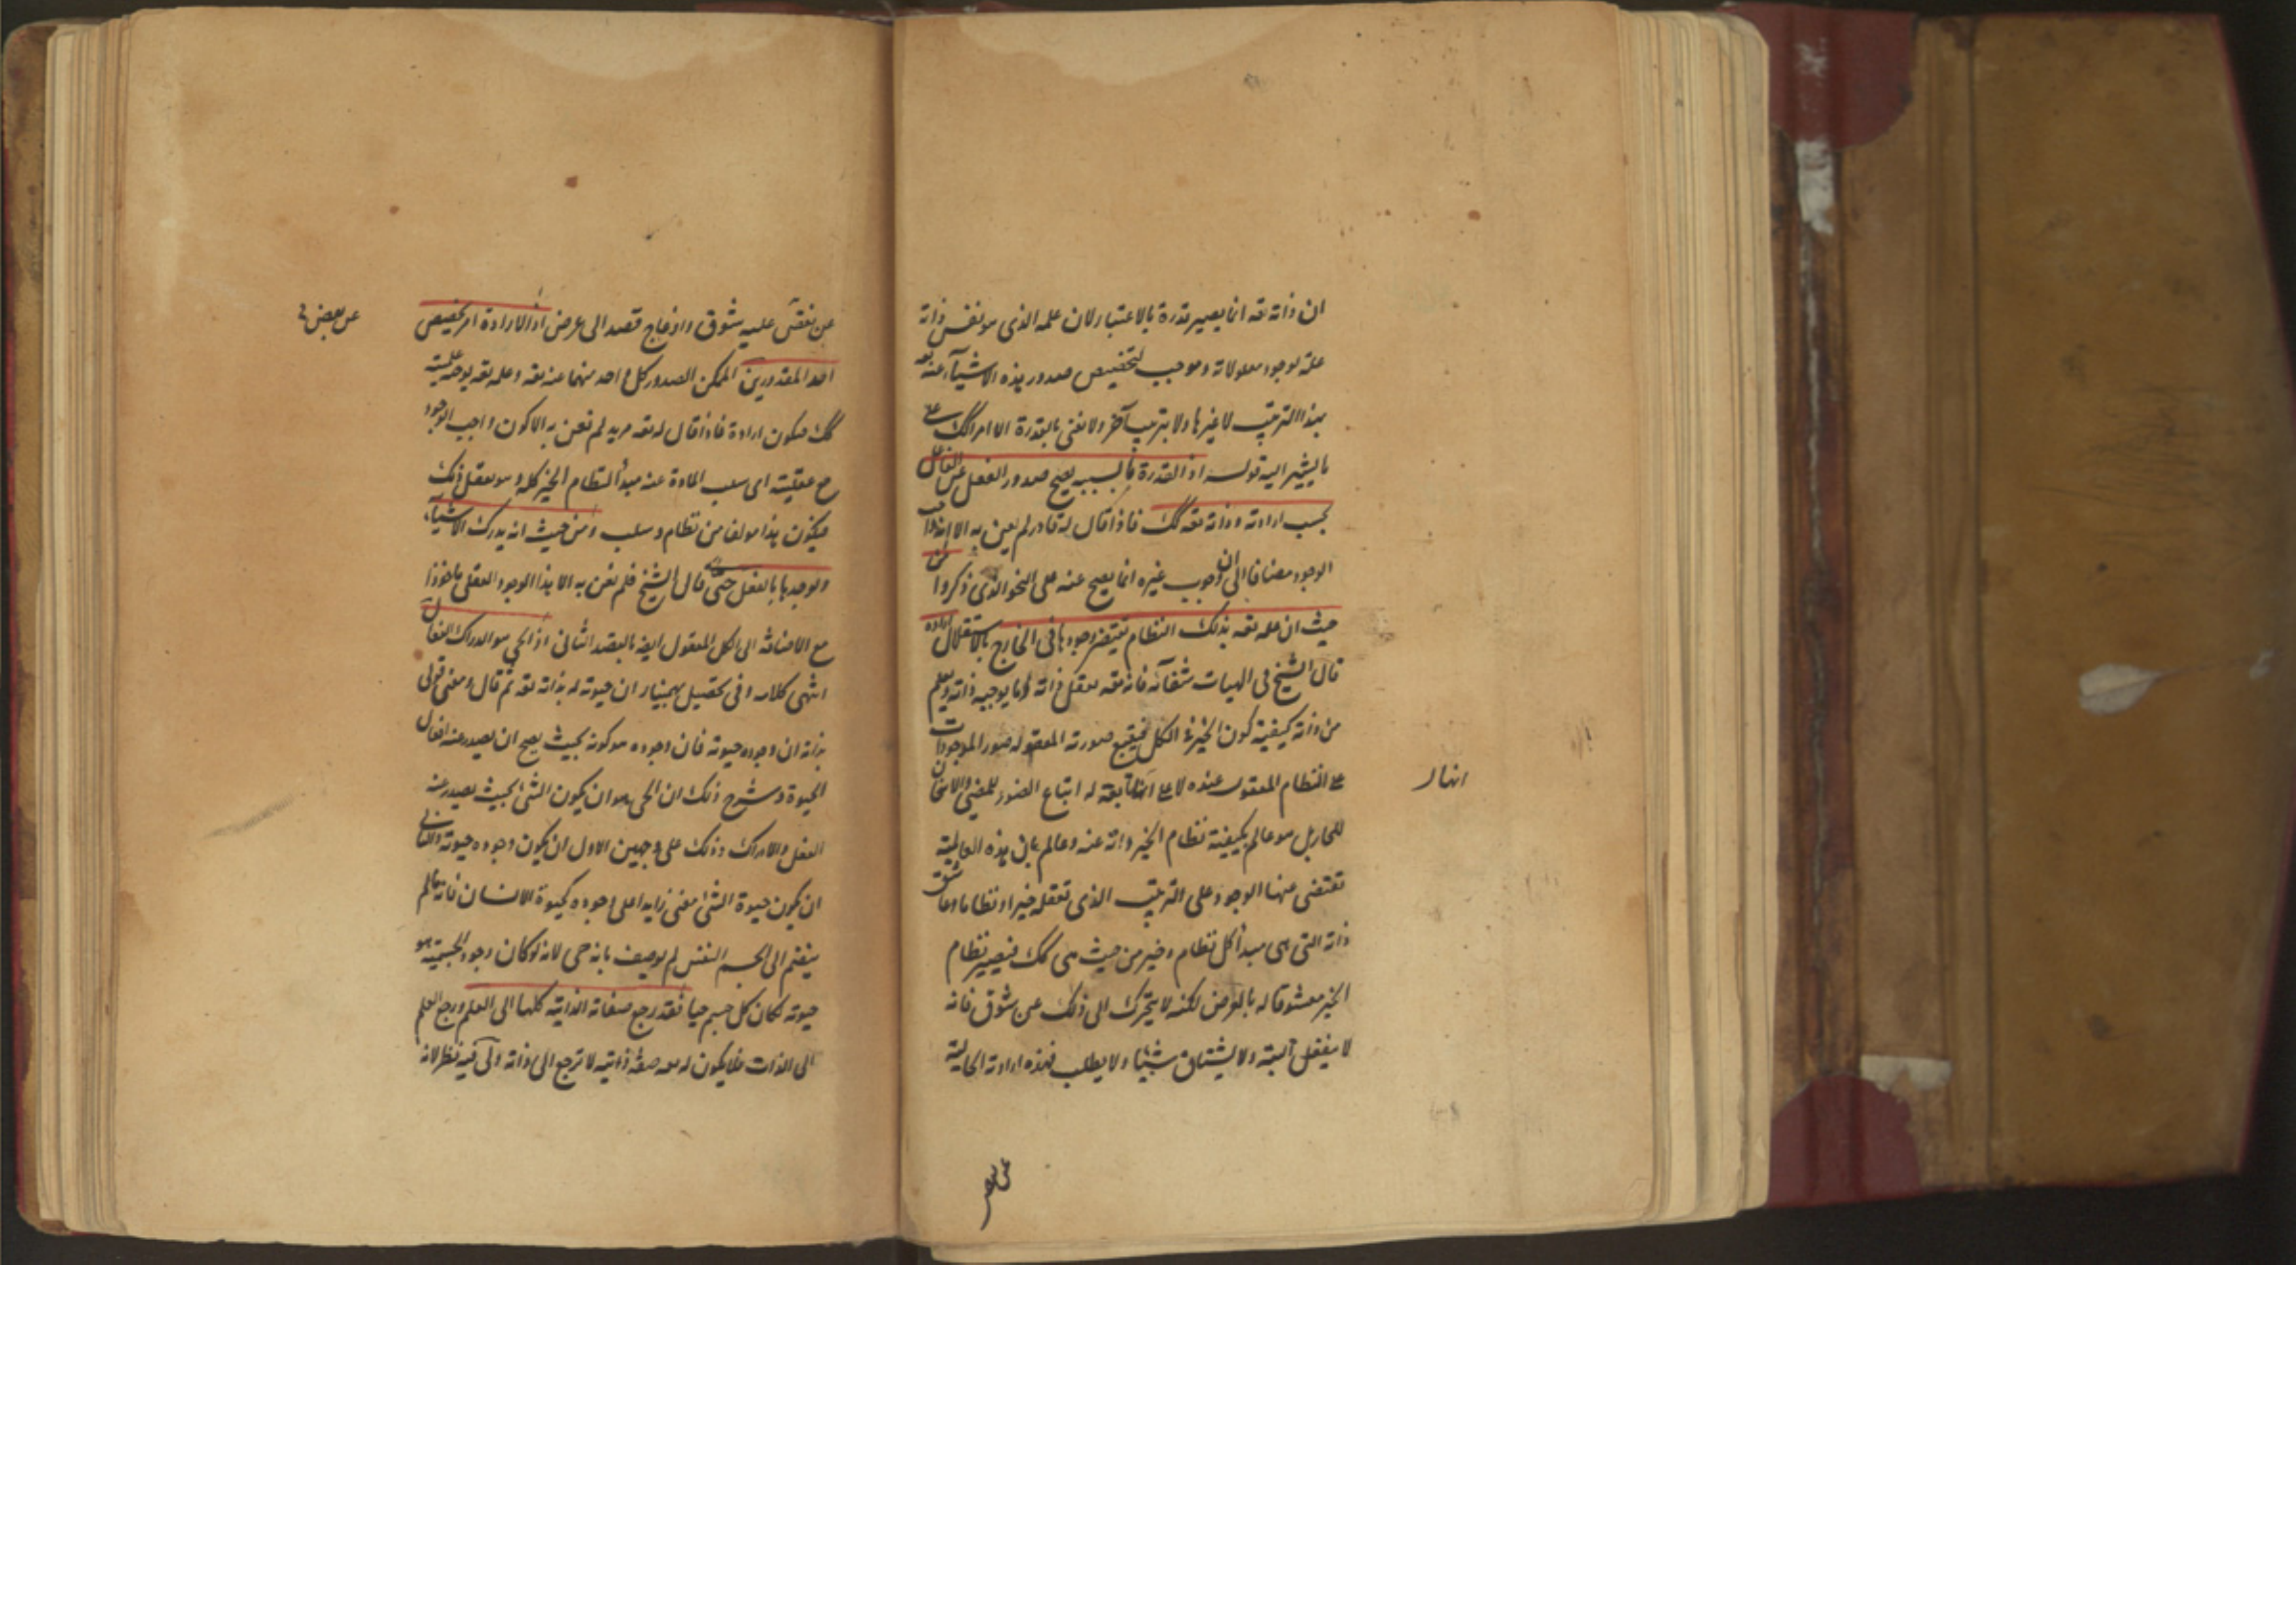 ان ذاته تعه انما يصير قدرة بالاعتبار لان علمه الذى هو نفس ذاته
علة لوجود معلولاته وموجب لتخصيص صدور هذه الاشيآء عنه تعه
بهذا الترتيب لا غيرها ولا بترتيب آخر ولا نعنى بالقدرة الا امرا كك على
ما يشير اليه قوله اذ القدرة ما بسببه يصح صدور الفعل عن الفاعل
بحسب ارادته وذاته تعه كك فاذا قال له قادر لم يعن به الا واجب
الوجود مضافا الى ان وجوب غيره انما يصح عنه على النحو الذى ذكروا من
حيث ان علمه تعه بذلك النظام يقتضى وجودها فى الخارج بالاستقلال اراده
قال الشيخ فى الهيات شفآئه فانه تعه يعقل ذاته وما يوجبه ذاته ويعلم
من ذاته كيفية كون الخير فى الكل فيتبع صورته المعقوله صور الموجودات
على النظام المعقول عنده لا على انها تابعة له اتباع الضوء للمضئ والاسخان
للحار بل هو عالم بكيفية نظام الخير وانه عنه وعالم بان هذه العالمية
تقتضى عنها الوجود على الترتيب الذى تعقله خيرا ونظاما وعاشق
ذاته التى هى مبدأ كل نظام وخير من حيث هى كك فيصير نظام
الخير معشوقا له بالعرض لكنه لا يتحرك الى ذلك عن شوق فانه
لا ينفعل البتة ولا يشتاق شيئا ولا يطلب فهذه ارادته الخالية
انها
عن نقص عليه شوق وازعاج قصد الى عرض اذ الارادة امر تخصيص
احد المقدورين الممكن الصدور كل واحد منهما عنه تعه وعلمه تعه
كك فيكون ارادة فاذا قال له تعه مريد لم نعن به الا كون واجب الوجود
مع عقليته اى سلب المادة عنه مبدأ لنظام الخير كله وهو يعقل ذلك
فيكون هذا مولفا من نظام وسلب ومن حيث انه يدرك الاشيآء
ويوجدها بالفعل حى قال الشيخ فلم نعن به الا هذا الوجود العقلى ماخوذا
مع الاضافة الى الكل المعقول ايضه بالقصد الثانى اذ الحى هو الدراك الفعال
انتهى كلامه وفى تحصيل بهمنيار ان حيوته له بذاته تعه ثم قال ومعنى قولى
بذاته ان وجوده حيوته فان وجوده هو كونه بحيث يصح ان يصدر عنه افعال
الحيوة وشرح ذلك ان الحى هو ان يكون الشئ بحيث يصدر عنه
الفعل والادراك وذلك على وجهين الاول ان يكون وجوده حيوته والثانى
ان يكون حيوة الشئ معنى زايدا على وجوده كحيوة الانسان فانه ما لم
ينضم الى الجسم النفس لم يوصف بانه حى لانه لو كان وجود الجسمية هو
حيوته لكان كل جسم حيا فقد رجع صفاته الذاتية كلها الى العلم ورجع العلم
الى الذات فلا يكون له تعه صفة ذاتية لا ترجع الى ذاته ولى فيه نظر لانه